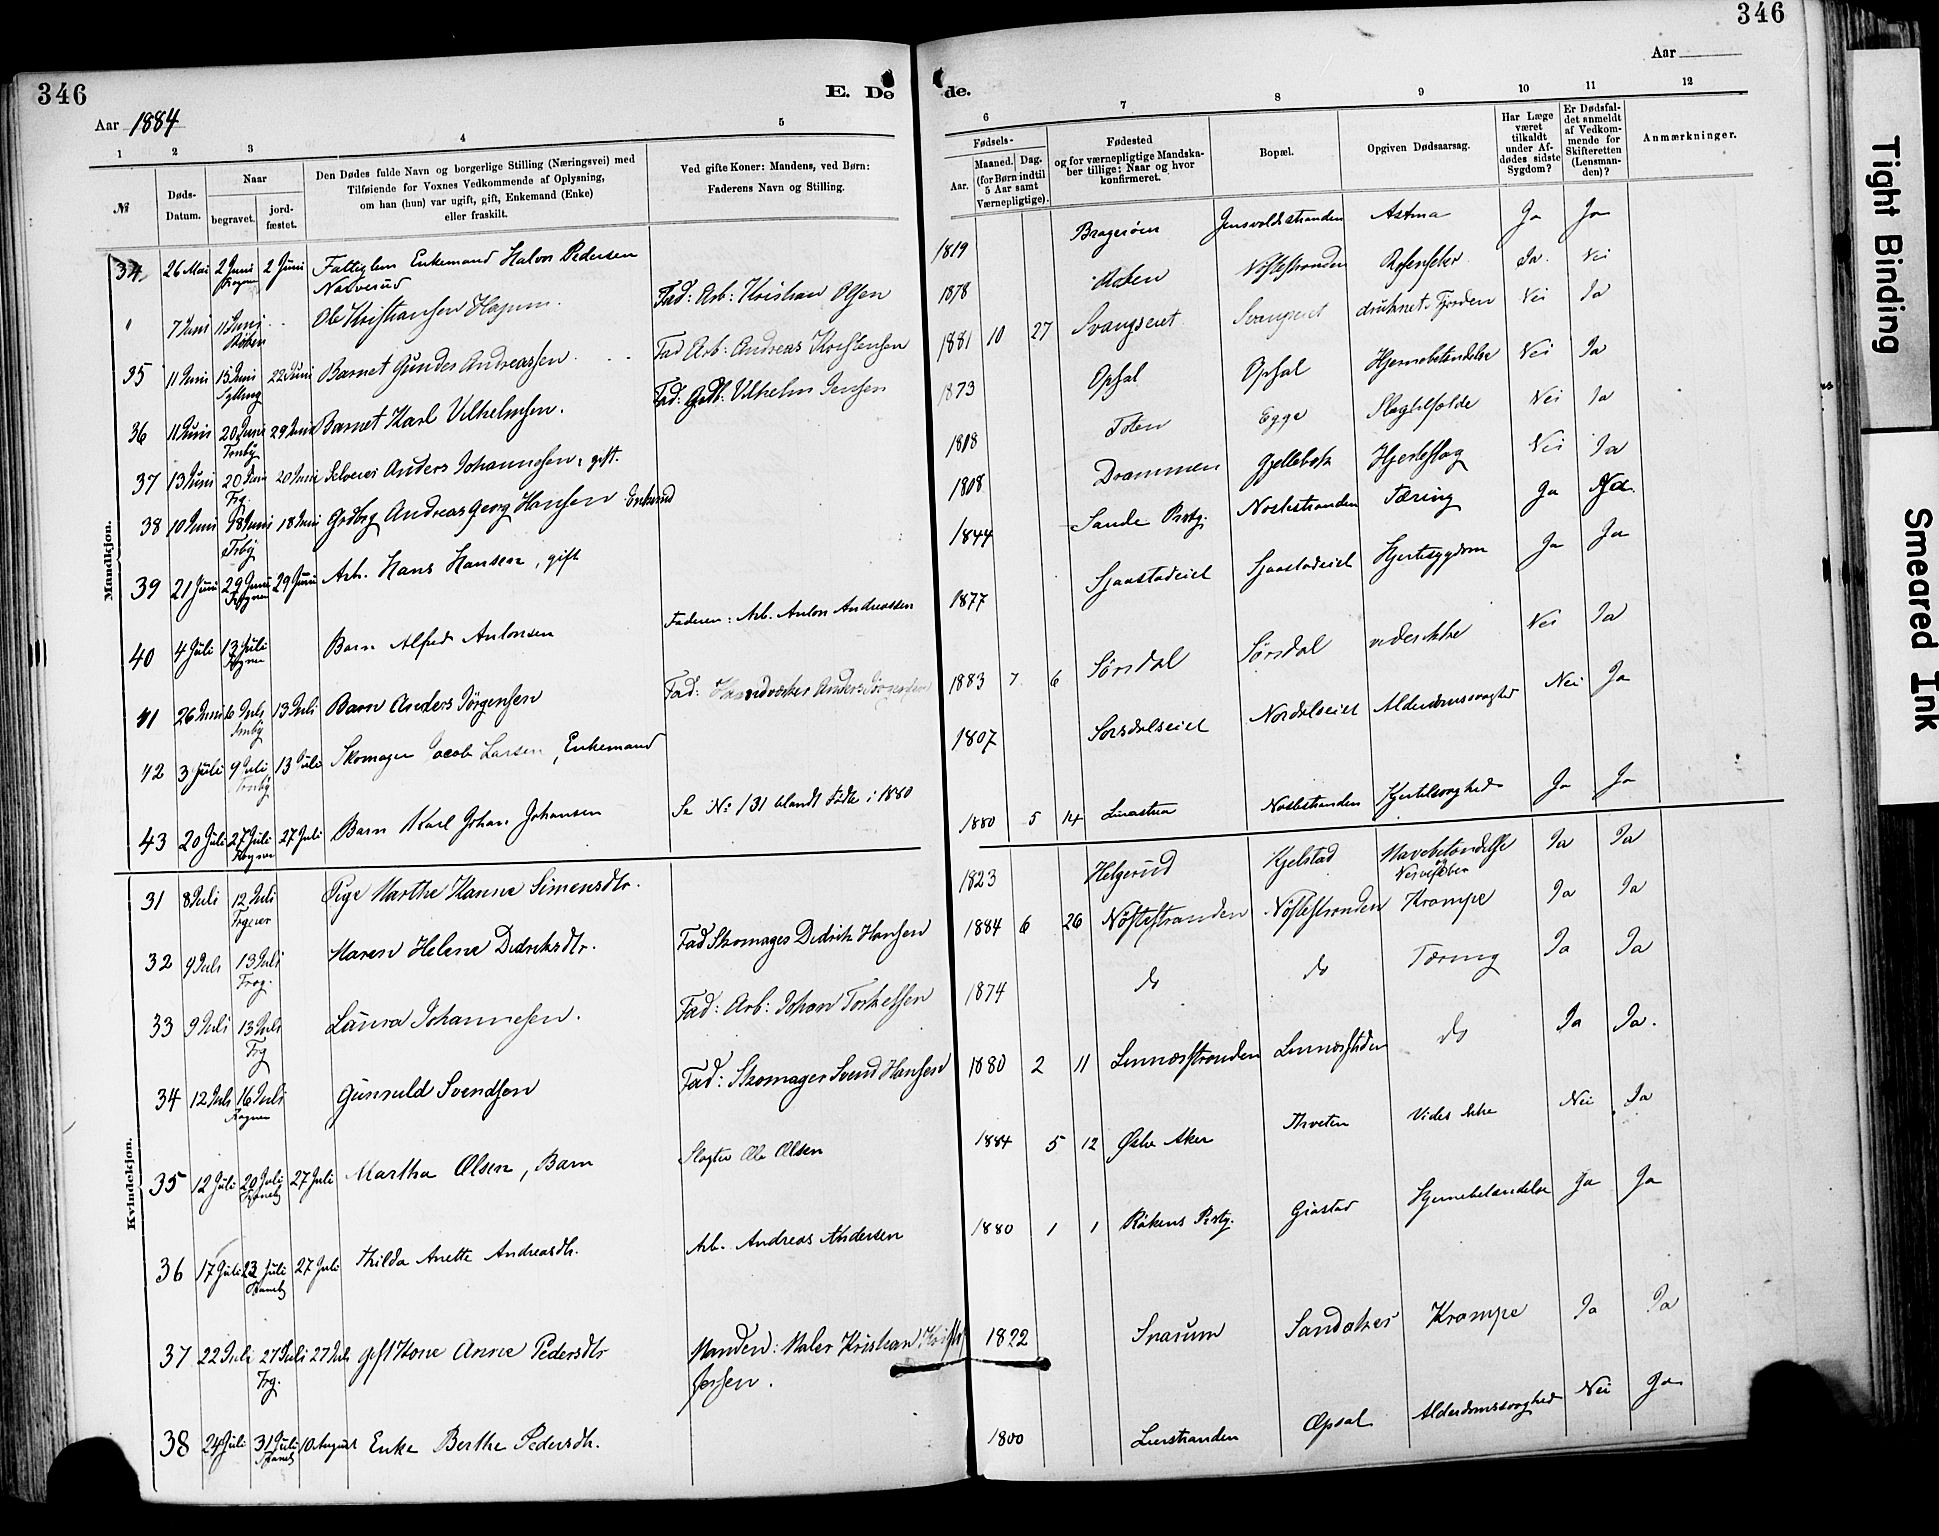 346
346
Aar 1884
E. Dø
de.
Aar
1
2
3
4
5
6
7
8
9
10
11
12
№
Døds-
Datum.
Naar
begravet.
jord-
fæstet.
Den Dødes fulde Navn og borgerlige Stilling (Næringsvei) med
Tilføiende for Voxnes Vedkommende af Oplysning,
om han (hun) var ugift, gift, Enkemand (Enke)
eller fraskilt.
Ved gifte Koner: Mandens, ved Børn:
Faderens Navn og Stilling.
Fødsels-
Aar.
Maaned. Dag.
(for Børn indtil
5 Aar samt
Værnepligtige).
Fødested
og for værnepligtige Mandska-
ber tillige: Naar og hvor
konfirmeret.
Bopæl.
Opgiven Dødsaarsag.
Har Læge
været
tilkaldt
under Af-
dødes sidste
Sygdom?
Er Dødsfal-
det anmeldt
af Vedkom-
mende for
Skifteretten
(Lensman-
den)?
Anmærkninger.
Mandkjøn.
34 26 Mai 2 Juni 2 Juni Fattiglem Enkemand Halvor Pedersen 1819 Bragerøen Astma Ja Ja
Frogner
" 7 Juni 11 Juni Ole Kristiansen Fad: Arb: Kristian Olsen 1878 Nøstestranden Nei
Røken
35 11 Juni 15 Juni 22 Juni Barnet Gunder Andreassen Fad Arb: Andreas Kristensen 1881 10 27 Svangseiet Svangseiet druknet i Fjorden Nei Ja
Sylling
36 11 Juni 20 Juni 29 Juni Barnet Karl Vilhelmsen. Fad: Gdb: Vilhelm Jensen 1873 Opsal Opsal Hjernebetændelse Nei Ja
Tranby
37 13 Juni 20 Juni 20 Juni Selveier Anders Johannesen, gift. 1818 Toten Egge Nei Ja
Frg.
38 10 Juni 18 Juni 18 Juni Grdbrg Andreas Georg Hansen Enkemd 1808 Drammen Gjellebæk Hjerteslag Nei Ja
Trby
39 21 Juni 29 Juni 29 Juni Arb. Hans Hansen, gift 1844 Sande Prstgj. Nøstestranden Tæring Ja Ja.
Frogner
40 4 Juli 13 Juli Barn Alfred Antonsen Faderen: Arb. Anton Andreassen 1877 Sjaastadeiet Sjaastadeiet Hjertesygdom Ja Ja
Frogner
41 26 Juni 6 Juli 13 Juli Barn Anders Jörgensen Fad: Haandværker Anders Jörgensen 1883 7 6 Sørsdal Sørsdal vides ikke Nei Ja
Tranby
42 3 Juli 9 Juli 13 Juli Skomager Jacob Larsen, Enkemand 1807 Sørsdalseiet Nordalseiet Alderdomssvaghed Nei Ja
Tranby
43 20 Juli 27 Juli 27 Juli Barn Karl Johan Johansen Se № 131 blandt Fødte i 1880 1880 5 14 Nøstestranden Ja Ja
Frogner
Kvindekjøn.
31 8 Juli 12 Juli Pige Marthe Hanne Simensdtr. 1823 Helgerud Kjelstad Mavebetændelse Ja Ja
Frogner Nervefeber
32 9 Juli 13 Juli Maren Helene Didriksdtr. Fad Skomager Didrik Hansen 1884 6 26 Nöstestranden Nöstestranden Krampe Ja Ja
Frog.
33 9 Juli 13 Juli Laura Johannesen. Fad: Arb: Johan Torkelsen 1874 do do Tæring Ja Ja
Frg
34 12 Juli 16 Juli Gunvald Svendsen Fad: Skomager Svend Hansen 1880 2 11 Linnæsstranden do Ja Ja.
Frogner
35 12 Juli 20 Juli 27 Juli Martha Olsen, Barn Slagter Ole Olsen 1884 5 12 Østre Aker Tveten Vides ikke Nei Ja
Tranby
36 17 Juli 23 Juli 27 Juli Thilda Anette Andreasdtr. Arb. Andreas Andersen 1880 1 1 Røkens Prstg. Hjernebetændelse Ja Ja
Tranby
37 22 Juli 27 Juli 27 Juli gift Kone Anne Pedersdtr Manden: Maler Kristian 1822 Snarum Sandaker Krampe Ja Ja
Frg.
38 24 Juli 31 Juli 10 August Enke Berthe Pedersdtr. 1800 Lierstranden Opsal Alderdomssvaghed Nei Ja
Tranby
Tight Binding
Smeared Ink